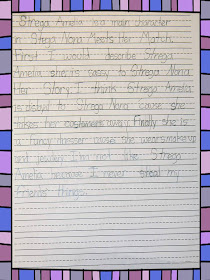 Strega Amelia is a main character
in Strega Nona Meets Her Match.
First I would describe Strega
Amelia she is sassy to Strega Nona.
Her Story. I think Strega Amelia
is disloyal to Strega Nona 'cause she
takes her away. Finally she is
a fancy dresser cause she wears makeup
and jewelry. I'm not like Strega
Amelia because I never steal my
friends' things.